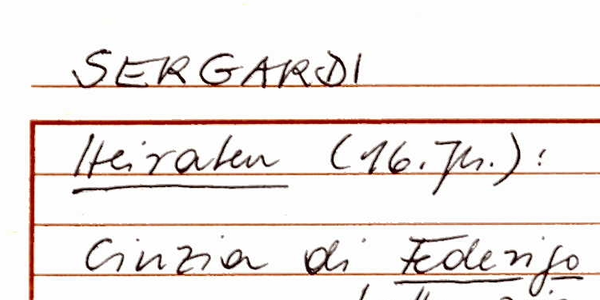 SERGARDI
Heiraten (16. Jh.):
Cinzia di Federigo